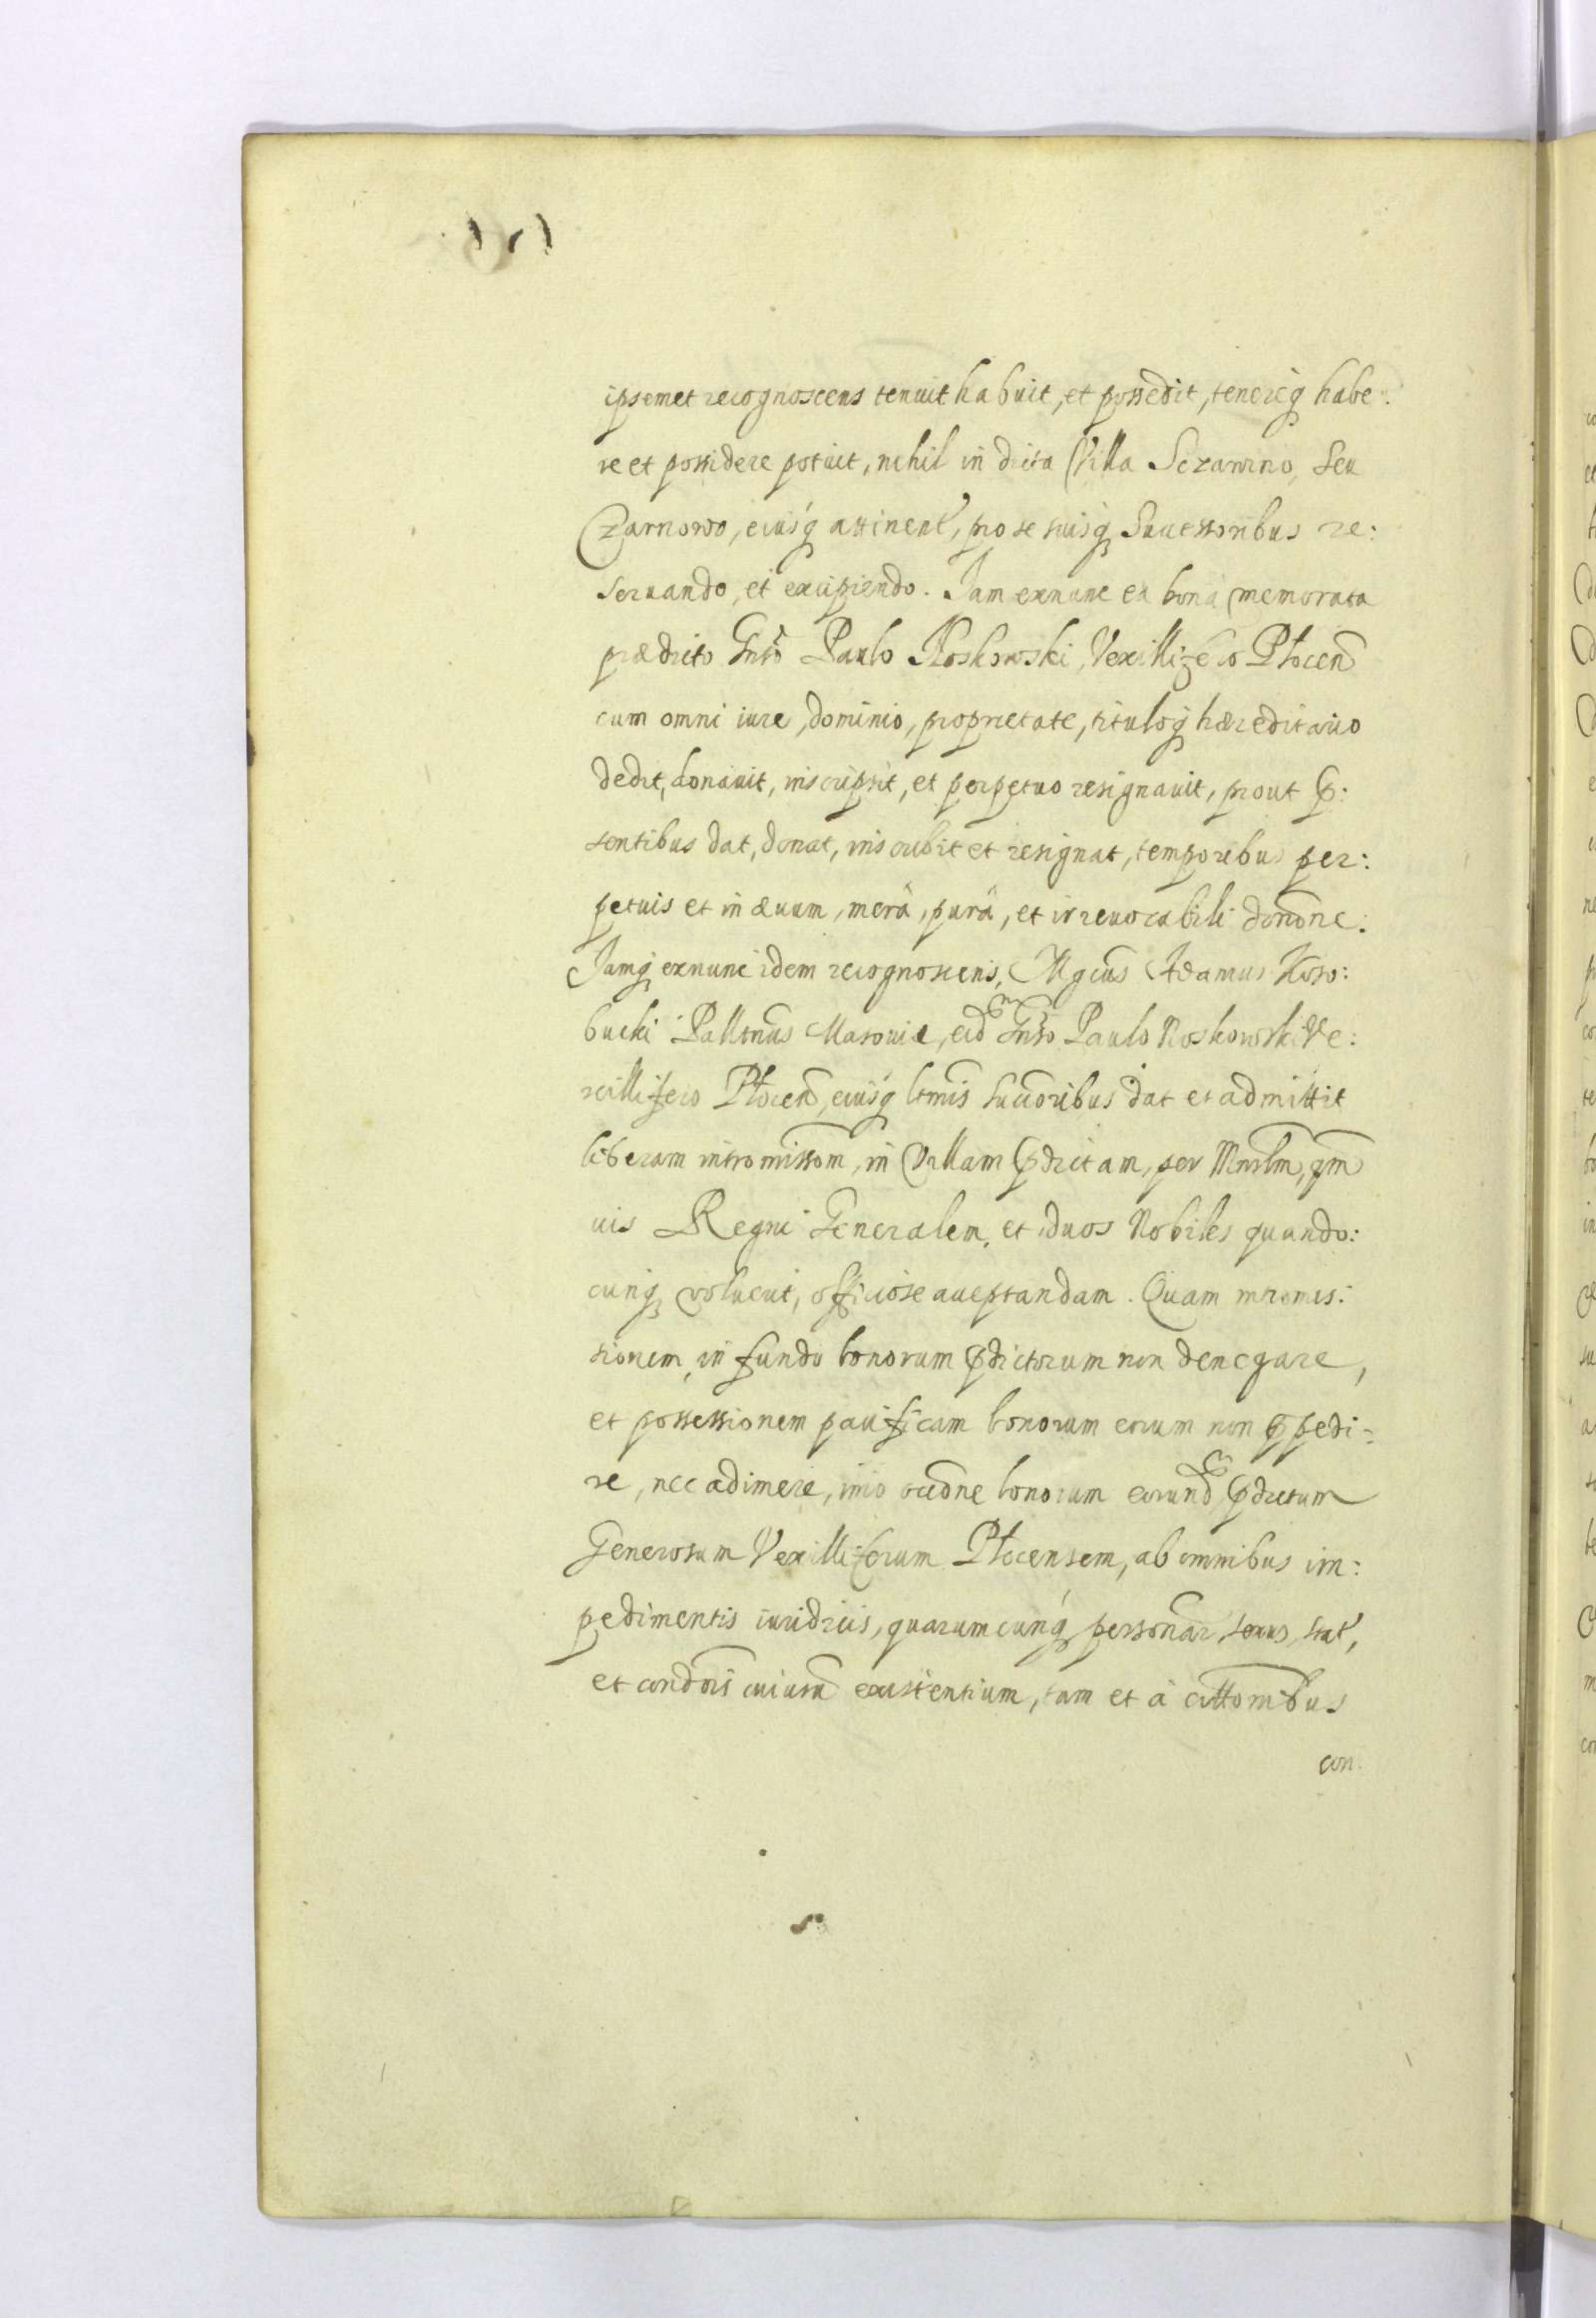 ipsemet recognoscens tenuit habuit, et possedit, tenereq́ habe:
re et possidere potuit, nihil in dicta Villa Sczawino, seu
Czarnowo, eiusq́ attinent, pro se suisq́ Successoribus re:
seruando, et excipiendo. Jam exnunc ea bona memorata
prædicto Gnso Paulo Noskowski, Vexillifero Plocen
cum omni iure, dominio, proprietate, tituloq́ hæreditario
dedit, donauit, inscripsit, et perpetuo resignauit, prout p:
sentibus dat, donat, inscribit et resignat, temporibus per:
petuis et in æuum, merâ, purâ, et irreuocabili donõne:
Jamq́ exnunc idem recognoscens, Mgcus Adamus Koso:
bucki Pallnus Masouiæ, eid Gnso Paulo Noskowski Ve:
xillifero Plocen, eiusq́ ltmis succoribus dat et admittit
liberam intromissom, in Villam pdictam, per Mnrlm, qm
uis Regni Generalem, et duos Nobiles quando:
cunq́ voluerit, officiose acceptandam. Quam intromis:
sionem, in fundo bonorum pdictorum non denegare,
et possessionem pacificam bonorum eorum non impedi:
re, nec adimere, imo roõne bonorum eorund pdictum
Generosum Vexilliferum Plocensem, ab omnibus im:
pedimentis iuridicis, quarumcunq́ personar, sexus, stat,
et condõis cuiusuis existentium, tam et à cittõnibus
con.